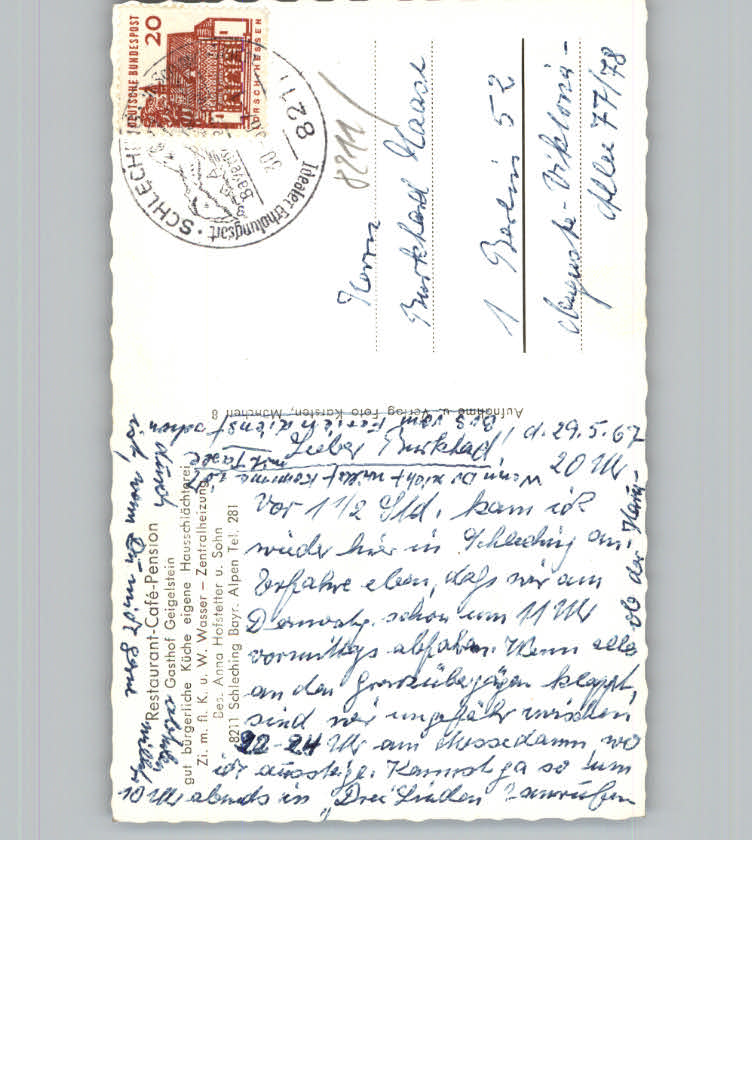 DEUTSCHE BUNDESPOST
20
LORSCH HESSEN
8211
Idealer Erholungsort · SCHLECHI
30
Bayern
82111
Herrn
Burkhard Haase
1 Berlin 52
Auguste-Viktoria-
Allee 77/78
Aufnahme u. Verlag Foto Karsten, München 8
Restaurant-Café-Pension
Gasthof Geigelstein
gut bürgerliche Küche eigene Hausschlächterei
Zi. m. fl. K. u. W. Wasser – Zentralheizung
Bes. Anna Hofstetter u. Sohn
8211 Schleching Bayr. Alpen Tel. 281
d. 29.5.67
20 Uhr
Lieber Burkhard!
Vor 1 1/2 Std. kam ich
wieder hier in Schleching an.
Erfahre eben, daß wir am
Donnerstg. schon um 11 Uhr
vormittags abfahren. Wenn alles
an den Grenzübergägen klappt,
sind wir ungefähr zwischen
22-24 Uhr am Messedamm, wo
ich aussteige. Kannst ja so um
10 Uhr abends in „Drei Linden" anrufen
ob der
durch
ist, wenn Du mich gerne
abholen willst
Wenn Du nicht willst komme ich
mit Taxe
Bis vom Feriendienst schon